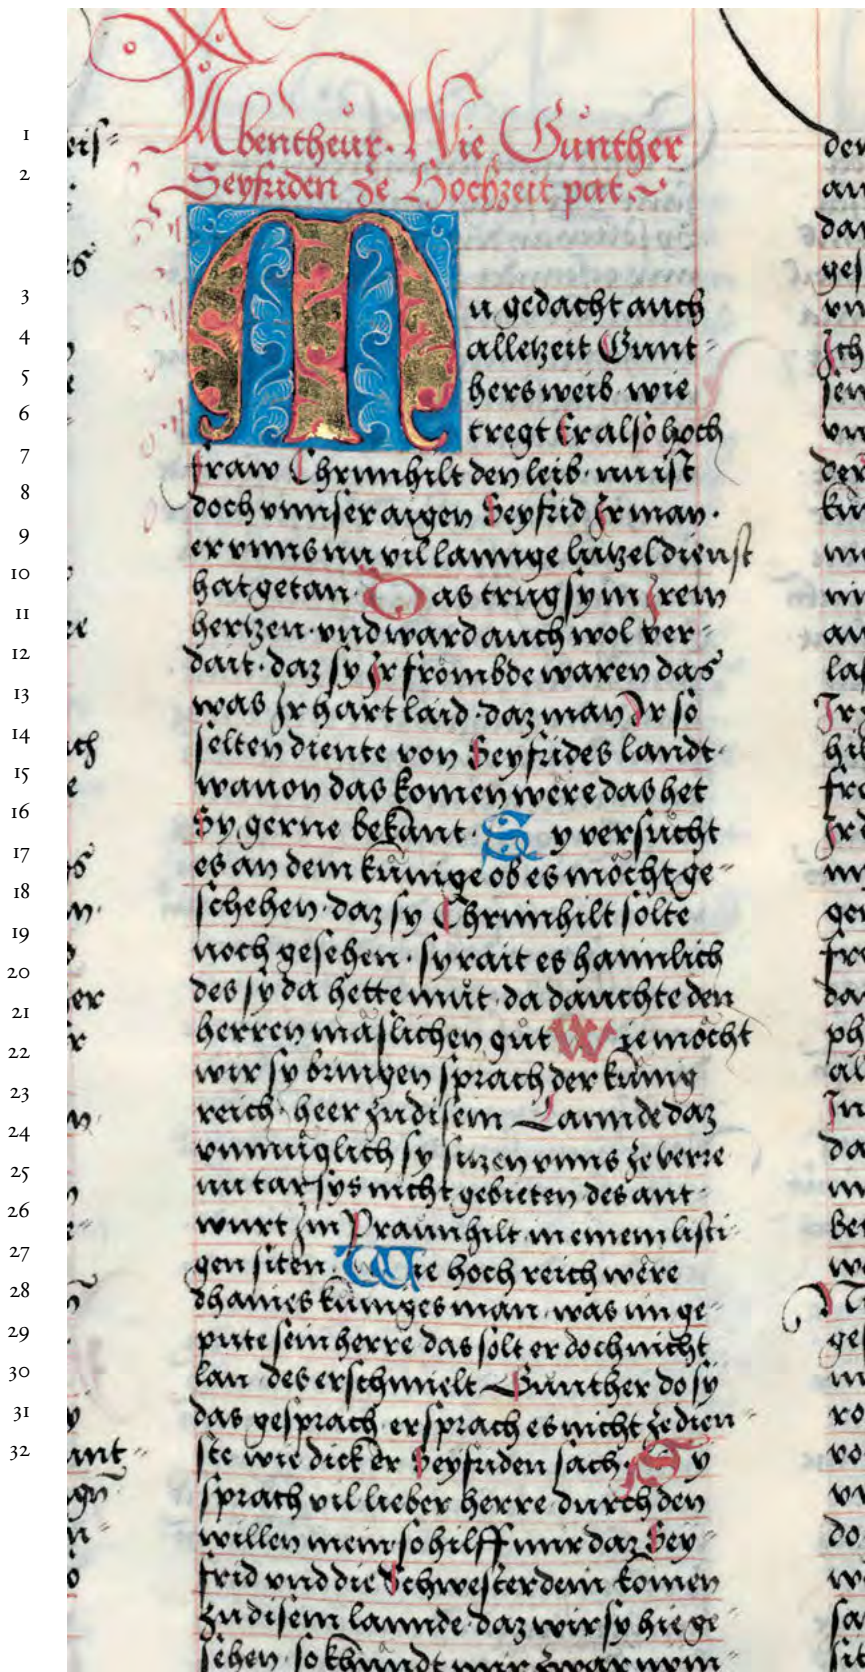 Abentheŭr. Wie Gŭnther
Seyfriden ze Hochzeit pat.
Nu gedacht auch
alletzeit Gunt=
hers weib wie
tregt Er also hoch
fraw Chrimhilt den leib. nu ist
doch vnnser aigen Seyfrid Ir man.
er vnns nu vil lannge lützel dienst
hat getan. Das trug sy in Irem
hertzen. vnd ward auch wol ver=
dait. daz sy Ir frömbde waren das
was Ir hart laid. daz man Ir so
selten diente von Seyfrides landt.
wauon das komen were das het
Sy gerne bekant. Sy versŭcht
es an dem künige ob es möcht ge=
schehen. daz sy Chrimhilt solte
noch gesehen. sy rait es haimlich
des sy da hette mŭt. da dauchte den
herren mäslichen gŭt Wie möcht
wir sy bringen sprach der künig
reich. heer zu disem Lannde daz
vnmüglich sy sitzen vnns ze verre
nu tar sys nicht gebieten des ant=
wurt Im Praunhilt in einem listi=
gen siten. Wie hoch reich wëre
dhaines küniges man. was im ge=
pute sein herre das solt er doch nicht
lan. des erschmielt Gŭnther do sy
das gesprach. er sprach es nicht ze dien=
ste wie dick er Seyfriden sach. Sy
sprach vil lieber herre durch den
willen mein so hilff mir daz Sey=
frid vnd die Schwester dein komen
zu disem lannde. daz wir sy hie ge=
sehen. so khundt mir zwar nym=
1
2
3
4
5
6
7
8
9
10
11
12
13
14
15
16
17
18
19
20
21
22
23
24
25
26
27
28
29
30
31
32